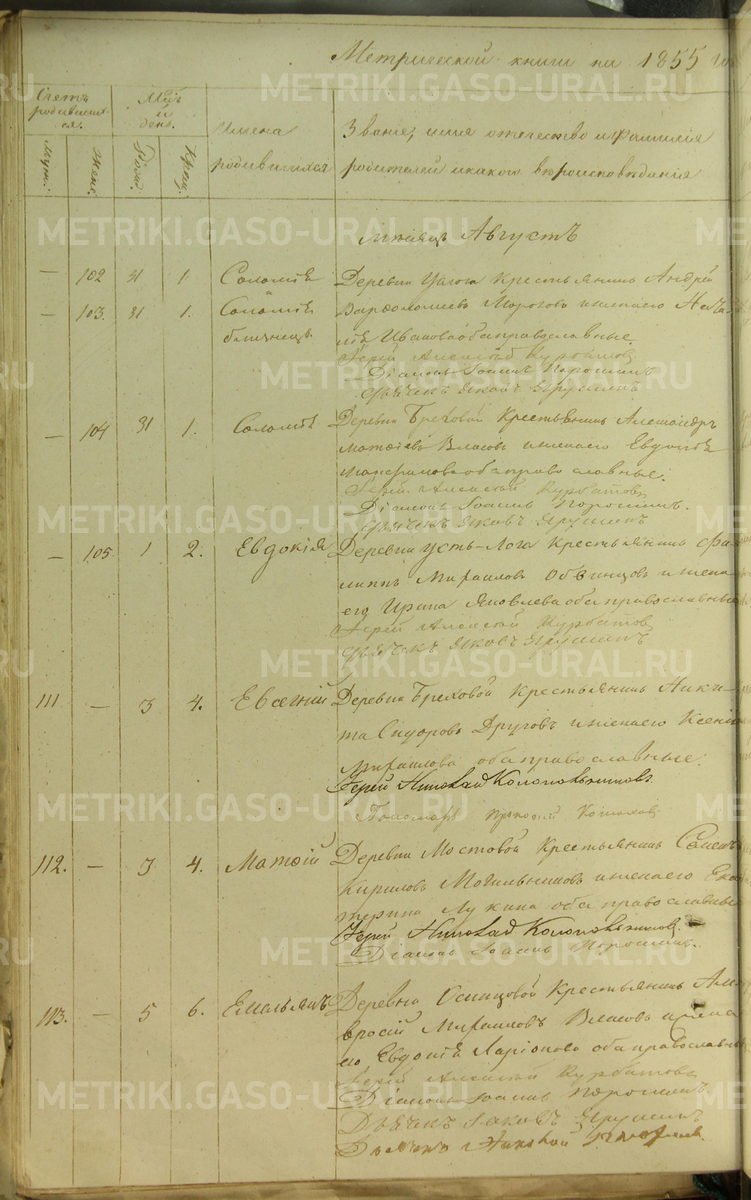 Метрической книги на 1855 го
Счетъ родившихся.
Мѣс. и день.
Имена родившихся
Званіе, имя отечество и фамилія
родителей и какого вѣроисповѣданія
Муж. Жен. Рожд. Крещ.
мѣсяцъ Августъ
— 102 31 1 Саломія Деревни Крестьянинъ Андрей
— 103. 31 1. Саломія Варѳоломеевъ и жена его
близнецы. Иванова оба православные.
Іерей Алексѣй Курбатовъ
Діаконъ Іоаннъ Порошинъ
Дьячекъ Яковъ Ярушинъ
— 104 31 1. Саломія Деревни Бреховой Крестьянинъ Александръ
Матѳіевъ Власовъ и жена его Евдокія
Максимова оба православные.
Іерей Алексѣй Курбатовъ
Діаконъ Іоаннъ Порошинъ.
Дьячекъ Яковъ Ярушинъ
— 105. 1 2. Евдокія Деревни Усть-Лога Крестьянинъ Фи-
липпъ Михаиловъ Обвинцовъ и жена
его Ирина Яковлева оба православные
Іерей Алексѣй Курбатовъ
Дьячекъ Яковъ Ярушинъ
111 — 3 4. Евсегній Деревни Бреховой Крестьянинъ Ники-
та Сидоровъ Друговъ и жена его Ксенія
Михаилова оба православные.
Іерей Николай Колокольниковъ.
Пономарь
112. — 3 4. Матѳій Деревни Мостовой Крестьянинъ Семенъ
Кириловъ Могильниковъ и жена его Ека-
терина Лукина оба православные
Іерей Николай Колокольниковъ.
Діаконъ Іоаннъ Порошинъ.
113. — 5 6. Емельянъ Деревни Осинцовой Крестьянинъ Ам-
вросій Михаиловъ Власовъ и жена
его Евдокія Ларіонова оба православные
Іерей Алексѣй Курбатовъ
Діаконъ Іоаннъ Порошинъ
Дьячекъ Іаковъ Ярушинъ
Дьячекъ Николай
METRIKI.GASO-URAL.RU